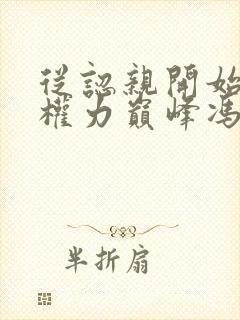 從認親開始
權力巔峰馮
半折扇